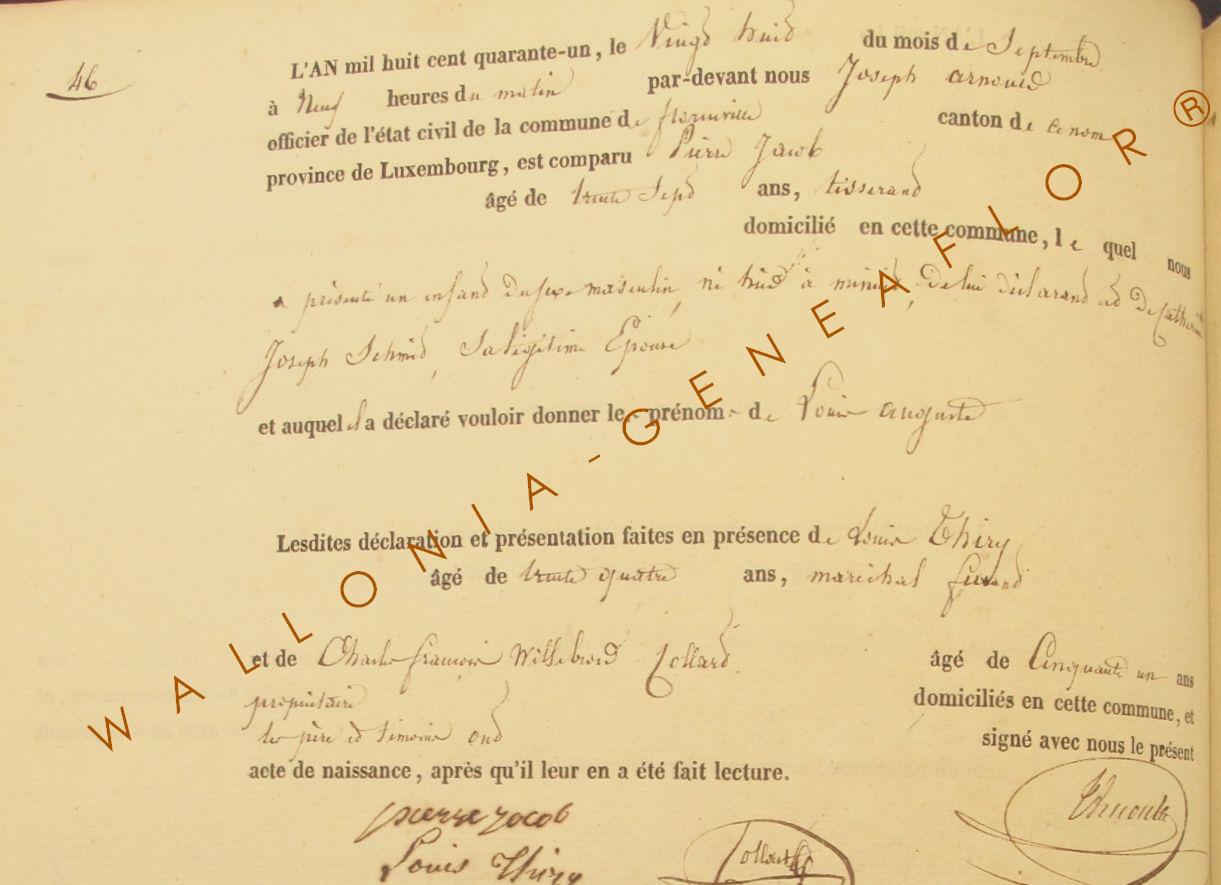 46
L'AN mil huit cent quarante-un, le Vingt huit du mois de Septembre
à Neuf heures du matin par-devant nous Joseph arnould
officier de l'état civil de la commune de florenville canton de ce nom
province de Luxembourg, est comparu Pierre Jacob
âgé de trente Sept ans, tisserand
domicilié en cette commune, le quel nous
a présenté un enfant du sexe masculin, né hier à minuit, de lui déclarant et de Catherine
Joseph Schmid, Sa légitime Epouse
et auquel il a déclaré vouloir donner les prénoms de Louis auguste
Lesdites déclaration et présentation faites en présence de Louis Thiry
âgé de trente quatre ans, maréchal ferrand
et de Charles françois Willebrord Collard âgé de Cinquante un ans
propriétaire domiciliés en cette commune, et
les père et témoins ont signé avec nous le présent
acte de naissance, après qu'il leur en a été fait lecture.
pierre jacob
Louis Thiry
Collard
WALLONIA-GENEAFLOR ®